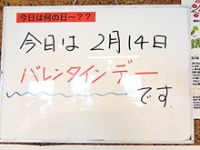 今日は何の日～？？
今日は2月14日
バレンタインデー
です